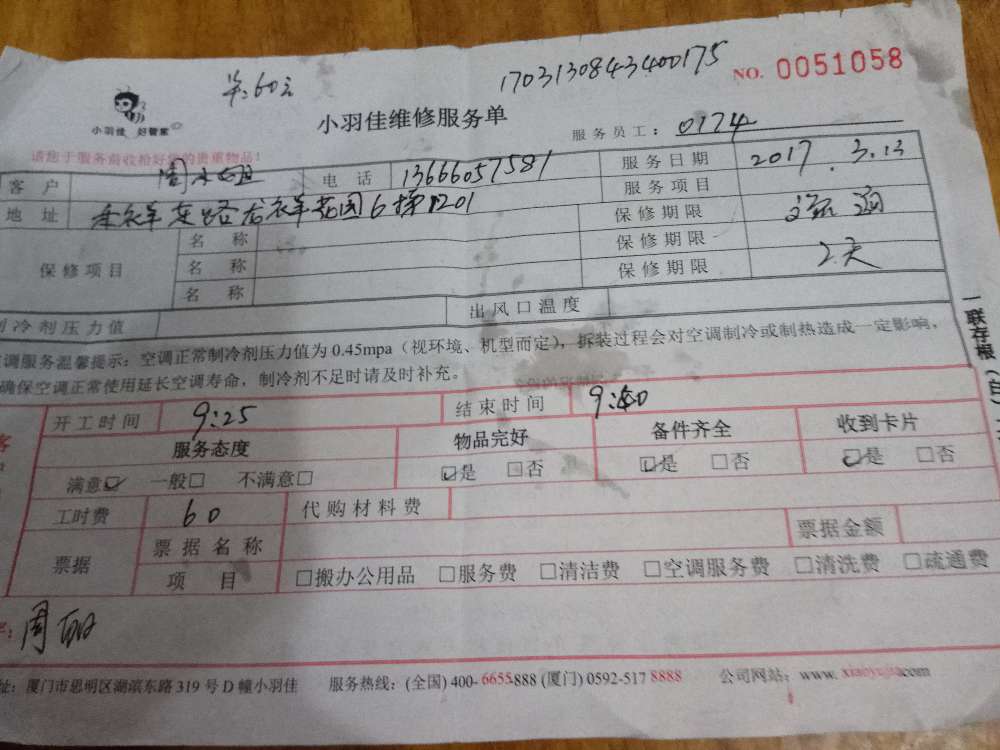 单:60元
1703130843400175
NO. 0051058
小羽佳 好管家
小羽佳维修服务单
服务员工: 0174
请您于服务前收拾好您的贵重物品!
客户 电话 13666057581 服务日期 2017. 3.13
服务项目 疏通
地址 花园6 1201 保修期限 2天
保修项目 名称 保修期限
名称 保修期限
名称
制冷剂压力值 出风口温度
调服务温馨提示:空调正常制冷剂压力值为0.45mpa(视环境、机型而定),拆装过程会对空调制冷或制热造成一定影响,
确保空调正常使用延长空调寿命,制冷剂不足时请及时补充。
一联存根(白)
客
开工时间 9:25 结束时间 9:40
服务态度 物品完好 备件齐全 收到卡片
满意☑ 一般□ 不满意□ ☑是 □否 ☑是 □否 ☑是 □否
工时费 60 代购材料费
票据 票据名称 票据金额
项目 □搬办公用品 □服务费 □清洁费 □空调服务费 □清洗费 □疏通费
字: 周
址:厦门市思明区湖滨东路319号D幢小羽佳 服务热线:(全国)400-6655-888 (厦门)0592-517 8888 公司网站:www.